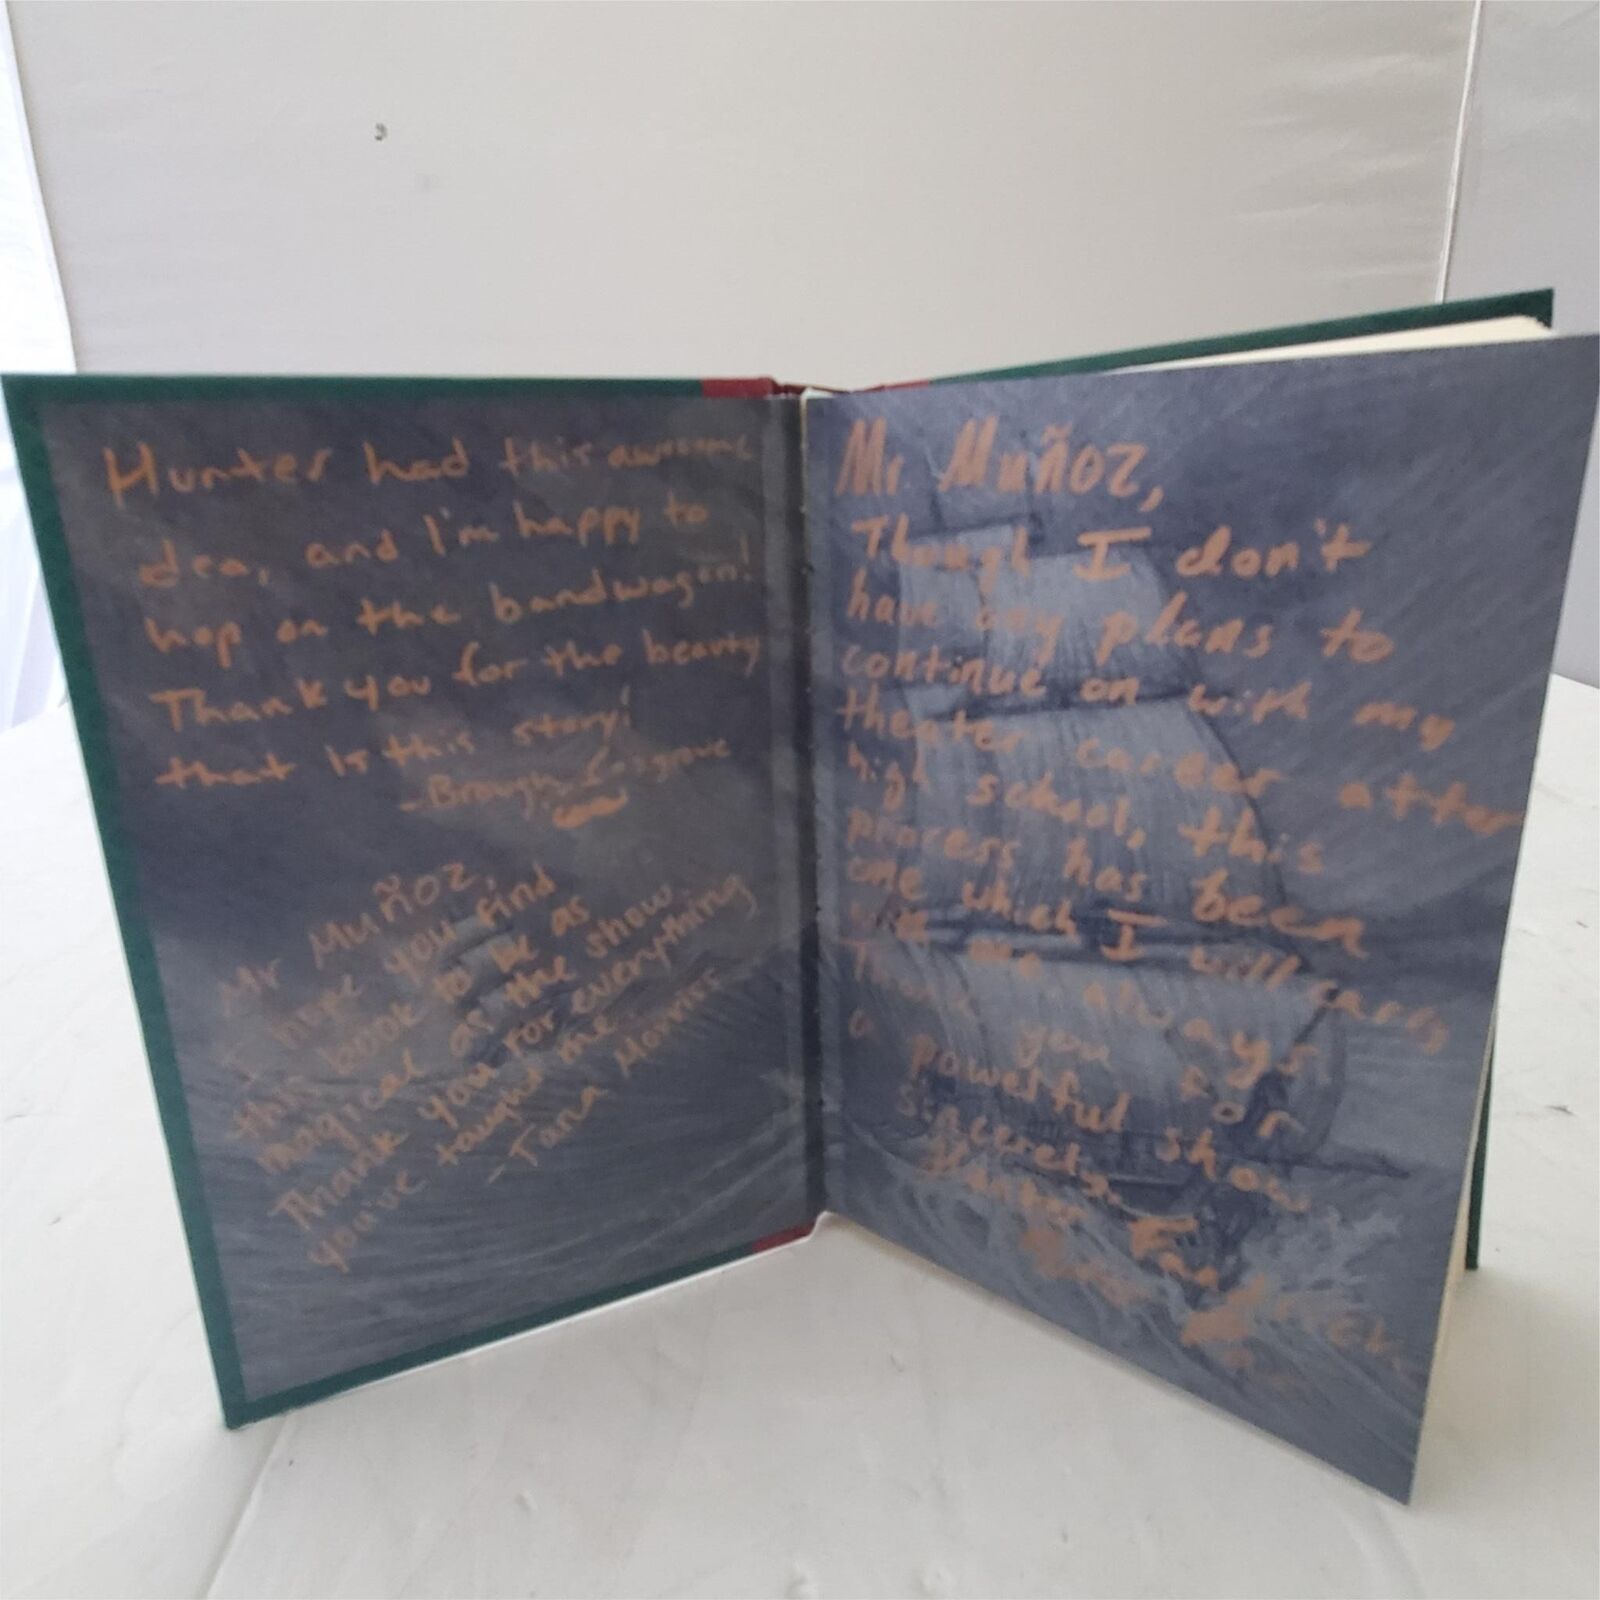 Hunter had this awesome
idea, and I'm happy to
hop on the bandwagon!
Thank you for the beauty
that is this story!
-Brough
Mr Muñoz,
I hope you find
this book to be as
magical as the show.
Thank you for everything
you've taught me
-Tana Morris
Mr. Muñoz,
Though I don't
have any plans to
continue on with my
theater career after
high school, this
process has been
one which I will carry
with me always
Thank you for
a powerful show
sincerely,
Hunter